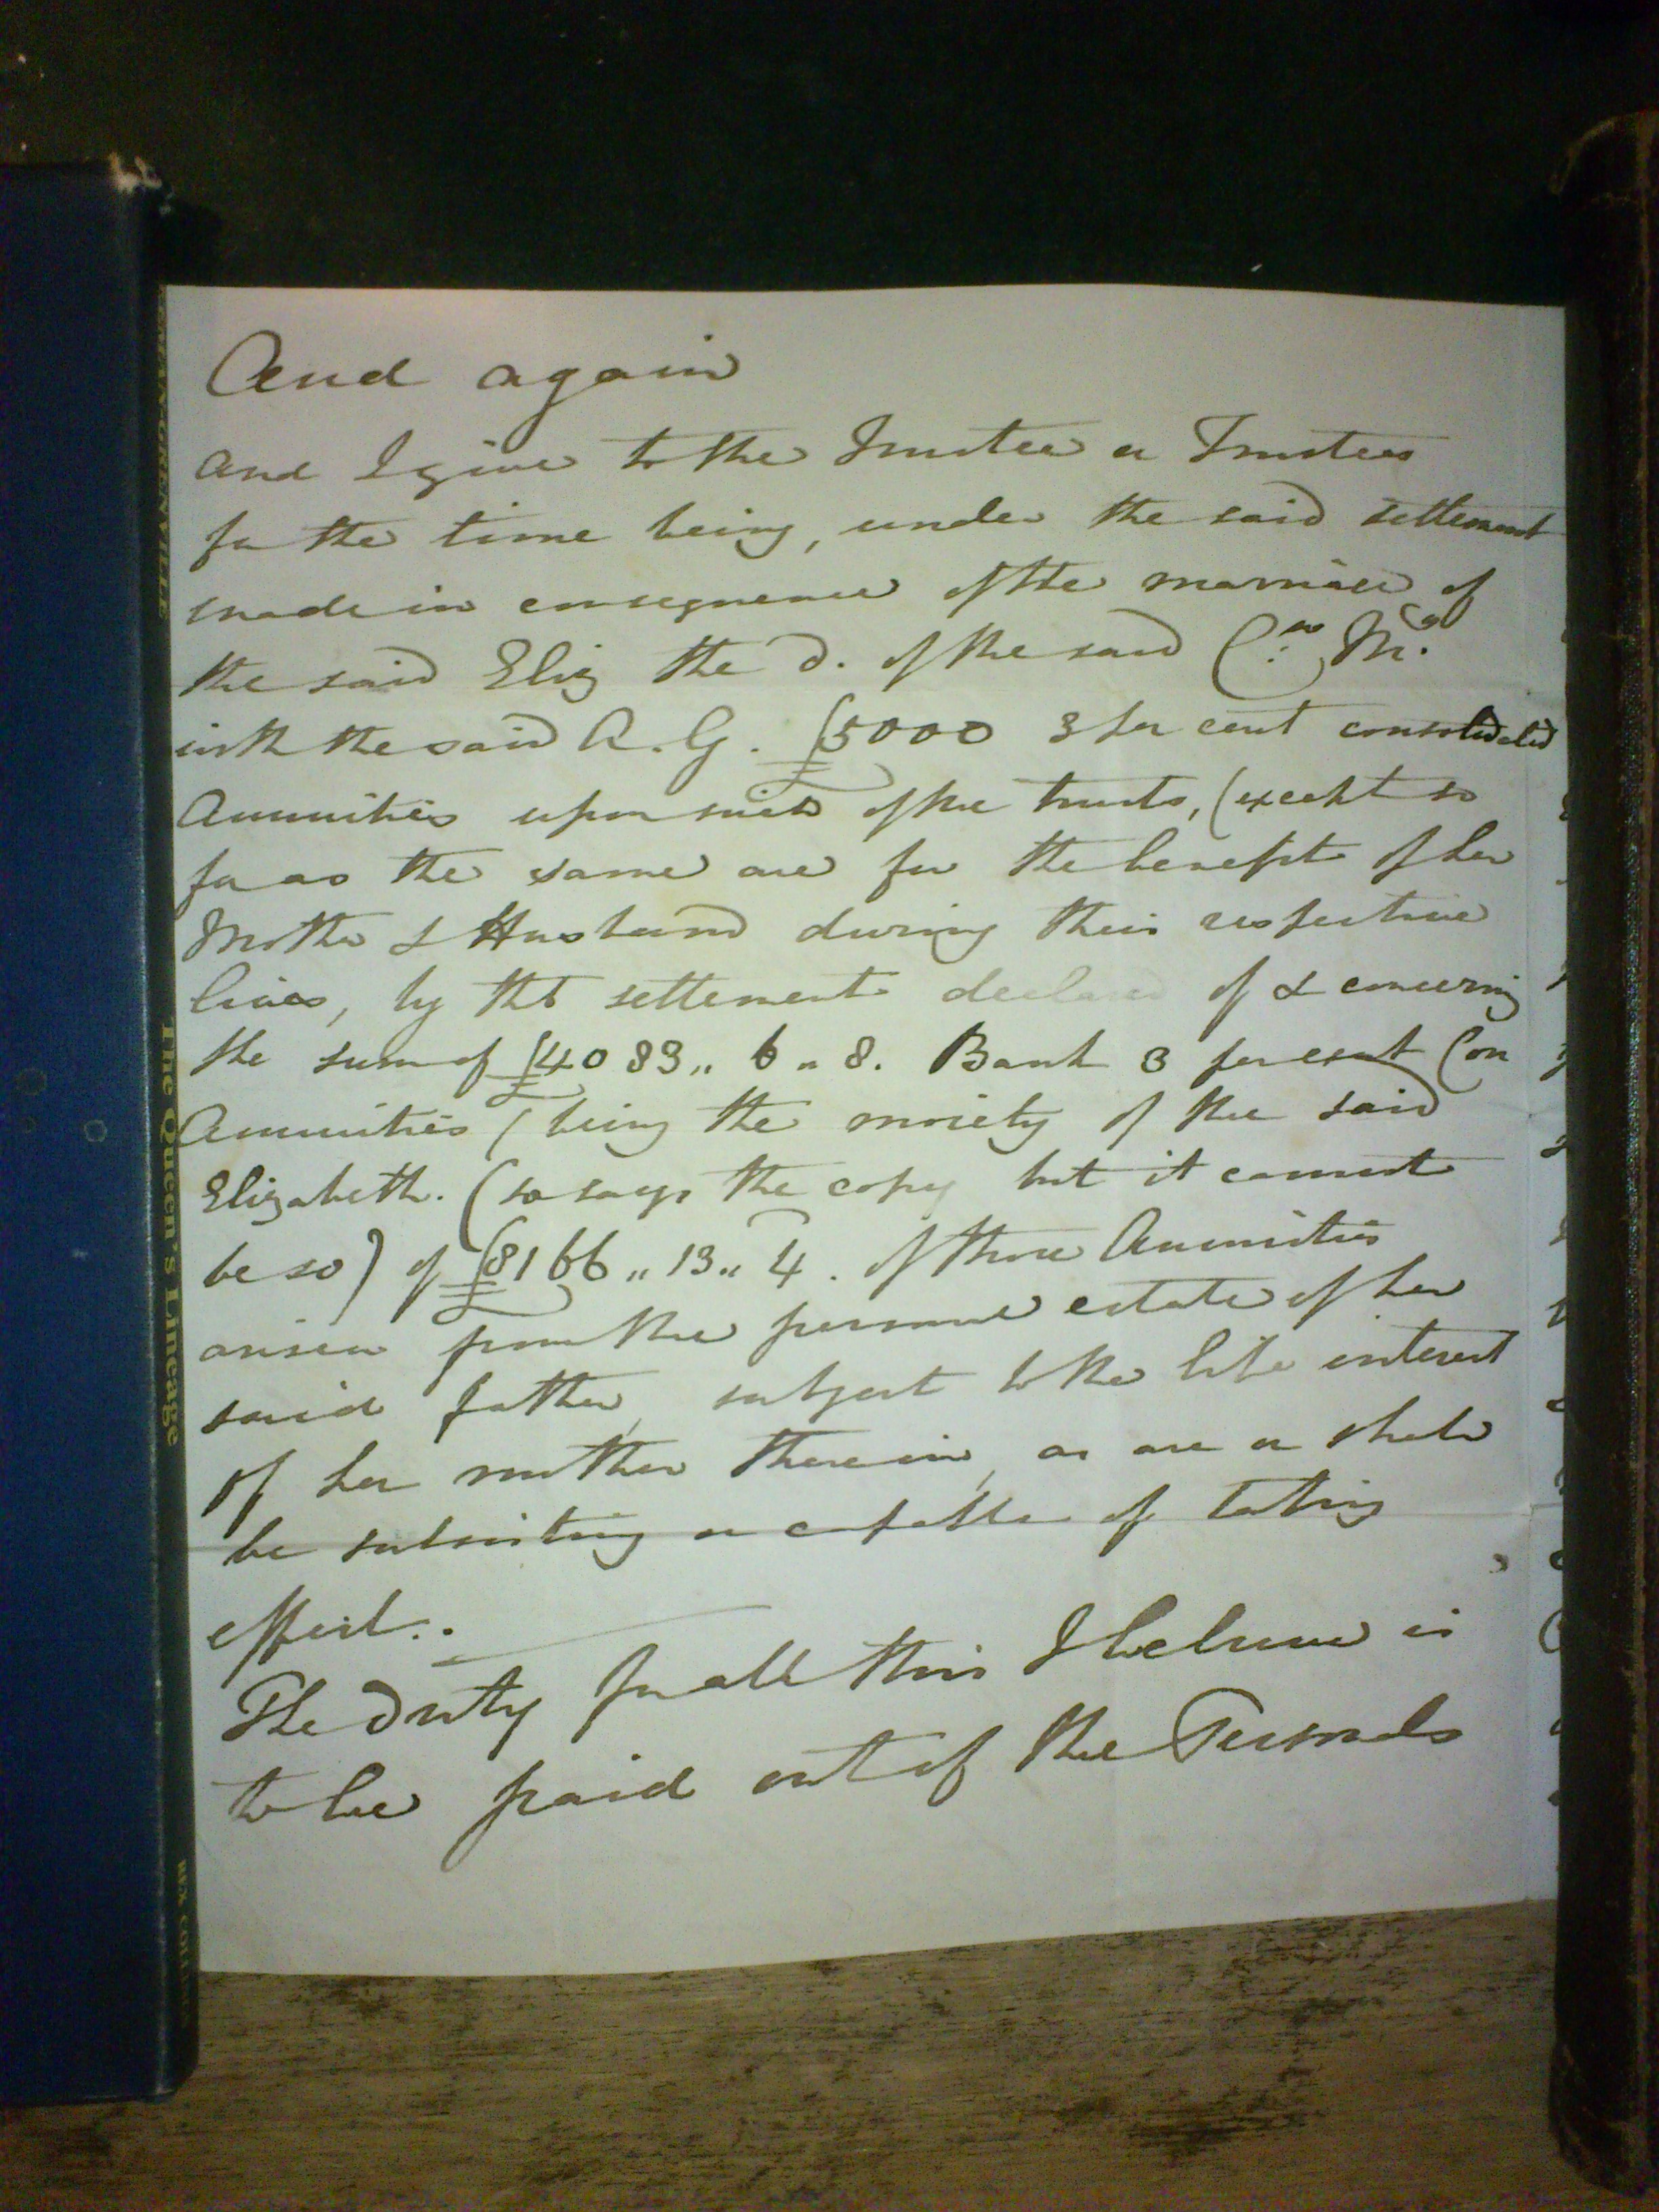 And again
and I give to the Trustee or Trustees
for the time being, under the said settlement
made in consequence of the marriage of
the said Eliz the d. of the said
with the said A. G. £5000 3 per cent consolidated
Annuities upon such of the trusts, (except so
far as the same are for the benefit of her
Mother & Husband during their respective
lives, by tht settlement declared of & concerning
the sum of £4083,, 6,, 8. Bank 3 per cent Con
Annuities (being the moiety of the said
Elizabeth. (so says the copy but it cannot
be so) of £8166,, 13,, 4. of those Annuities
arisen from the personal estate of her
said father, subject to the life interest
of her mother therein, as are or shall
be subsisting or capable of taking
effect..
The duty for all this I believe is
to be paid out of the
The Queen's Lineage
REX COLLINGS